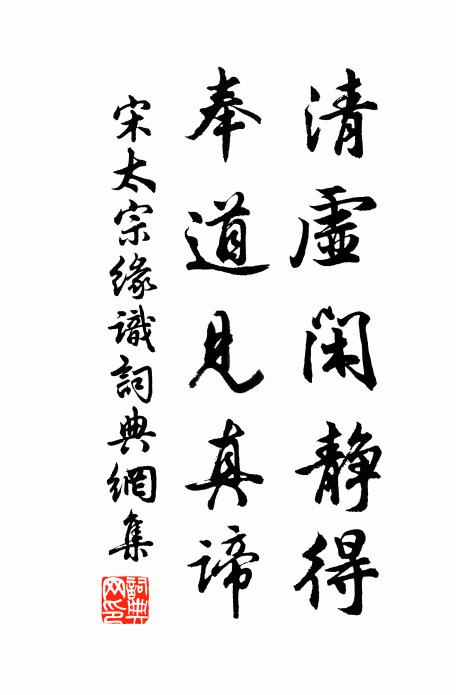 清虛閑靜得
奉道見真諦
宋太宗緣識詞典網集
詞典网印